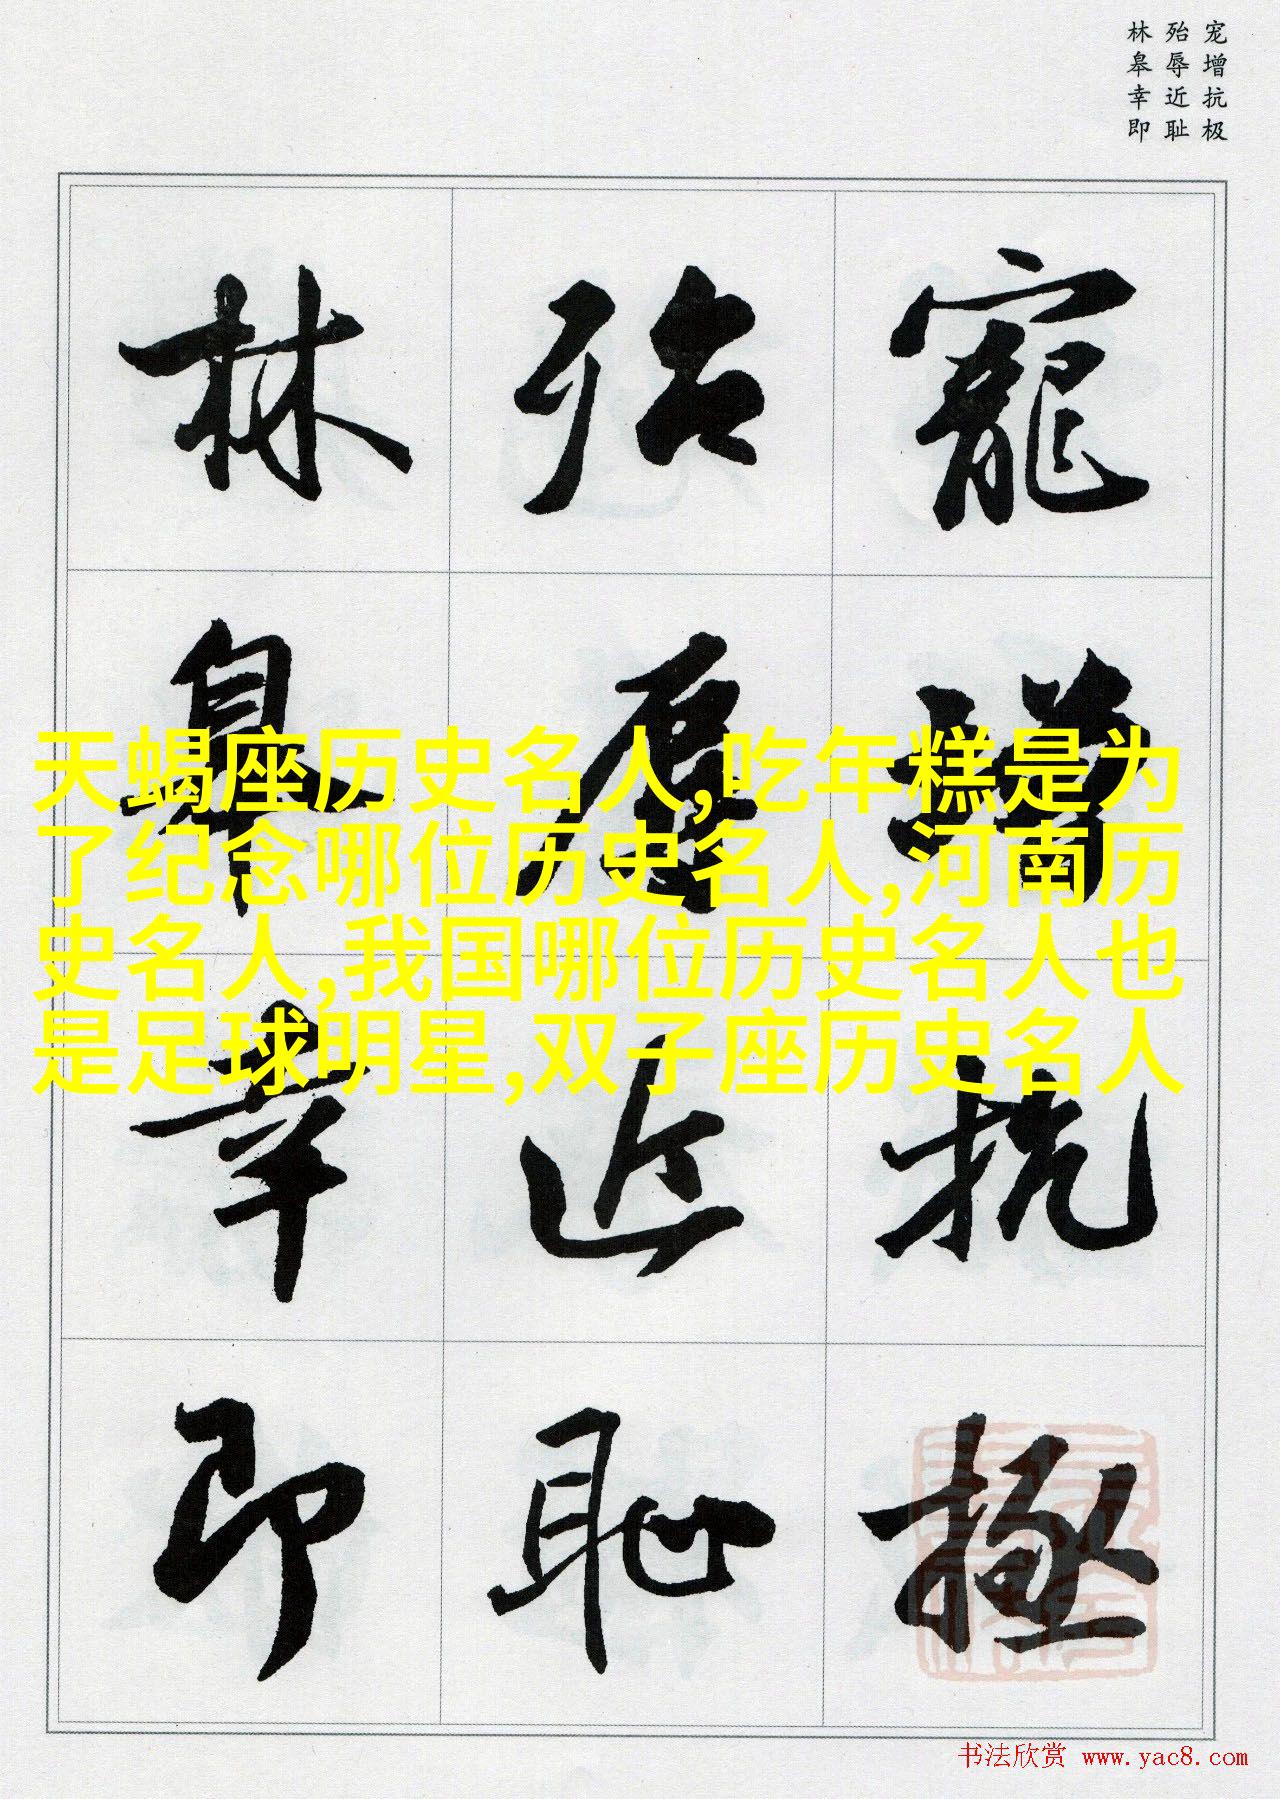 宠增抗极
殆辱近耻
林皋幸即
寵增抗極
殆辱近恥
林皋幸即
天蝎座历史名人,吃年糕是为
了纪念哪位历史名人,河南历
史名人,我国哪位历史名人也
是足球明星,双子座历史名人
书法欣赏 www.yac8.com